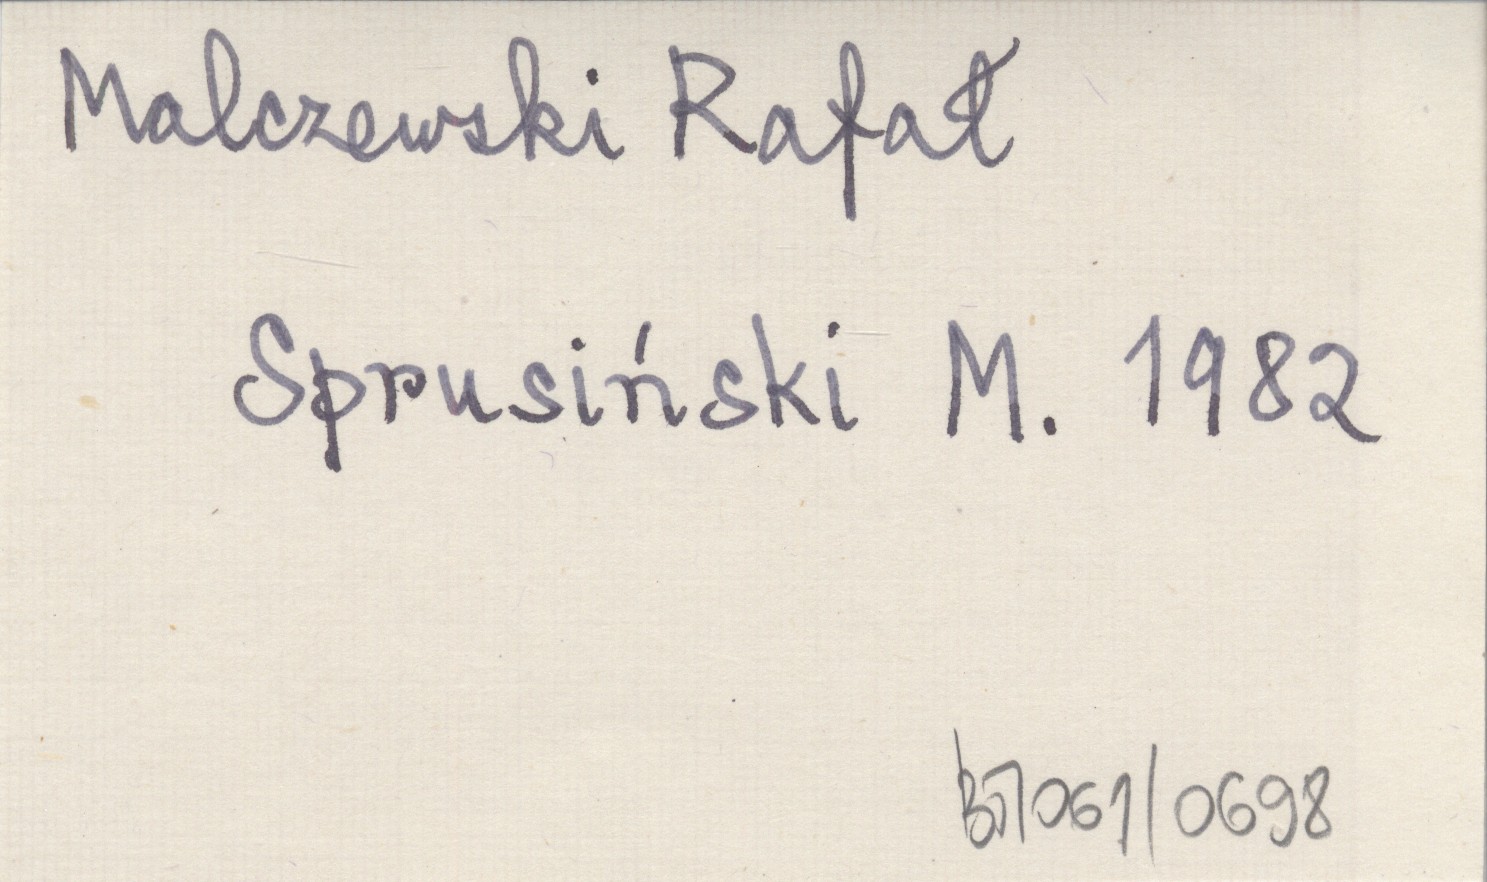 Malczewski Rafał
Sprusiński M. 1982
061/0698